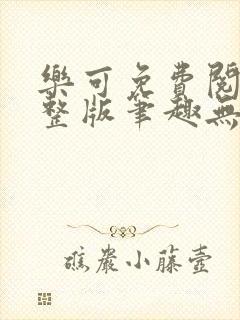 樂可免費閱
整版筆趣無
礁巖小藤壺